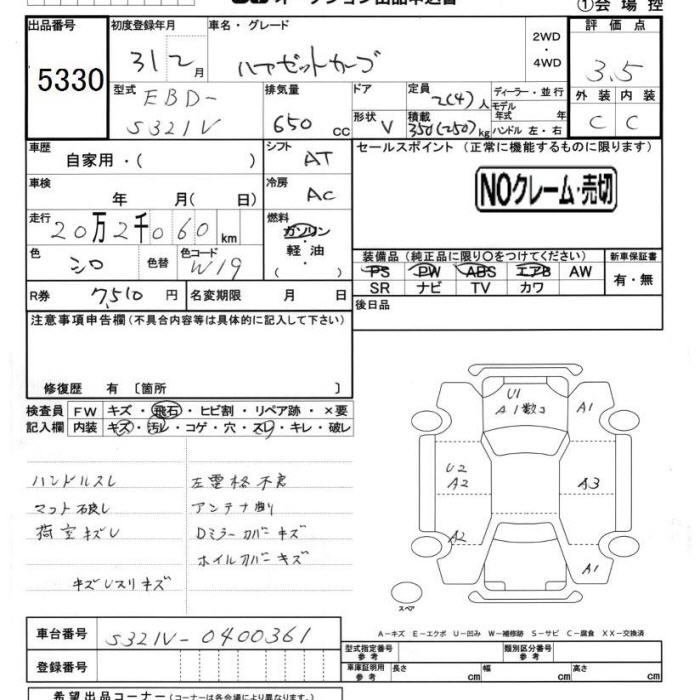 オークション出品申込書
①会場控
出品番号 初度登録年月 車名・グレード 評価点
5330
31 2月 ハイゼットカーゴ
2WD
・
4WD
3.5
型式 排気量 ドア 定員 ディーラー・並行
EBD-
S321V
650 cc
形状 V
2(4)人
積載 350(250)kg
モデル年式 年
ハンドル 左・右
外装 内装
C C
車歴 シフト セールスポイント (正常に機能するものに限ります)
自家用・( ) AT
NOクレーム・売切
車検 冷房
年 月( 日) AC
走行 燃料
20万2千060km
ガソリン
軽油
( )
色 色替 色コード
シロ W19
装備品 (純正品に限り〇をつけてください) 新車保証書
PS PW ABS エアB AW
SR ナビ TV カワ
有・無
R券 7,510円 名変期限 月 日
後日品
注意事項申告欄 (不具合内容等は具体的に記入して下さい)
修復歴 有 〔箇所 〕
検査員 FW キズ・飛石・ヒビ割・リペア跡・×要
記入欄 内装 キズ・汚レ・コゲ・穴・スレ・キレ・破レ
ハンドルスレ 左電格不良
マット不良 アンテナ曲り
荷室キズレ Dミラーカバーキズ
ホイルカバーキズ
キズレスリキズ
U1
A1数コ
A1
U2
A2
A3
A2
A1
スペア
A-キズ E-エクボ U-凹み W-補修跡 S-サビ C-腐食 XX-交換済
車台番号 S321V-0400361
登録番号
型式指定番号 参考 類別区分番号 参考
車庫証明用 参考 長さ cm 幅 cm 高さ cm
希望出品コーナー (コーナーは各会場により異なります。)